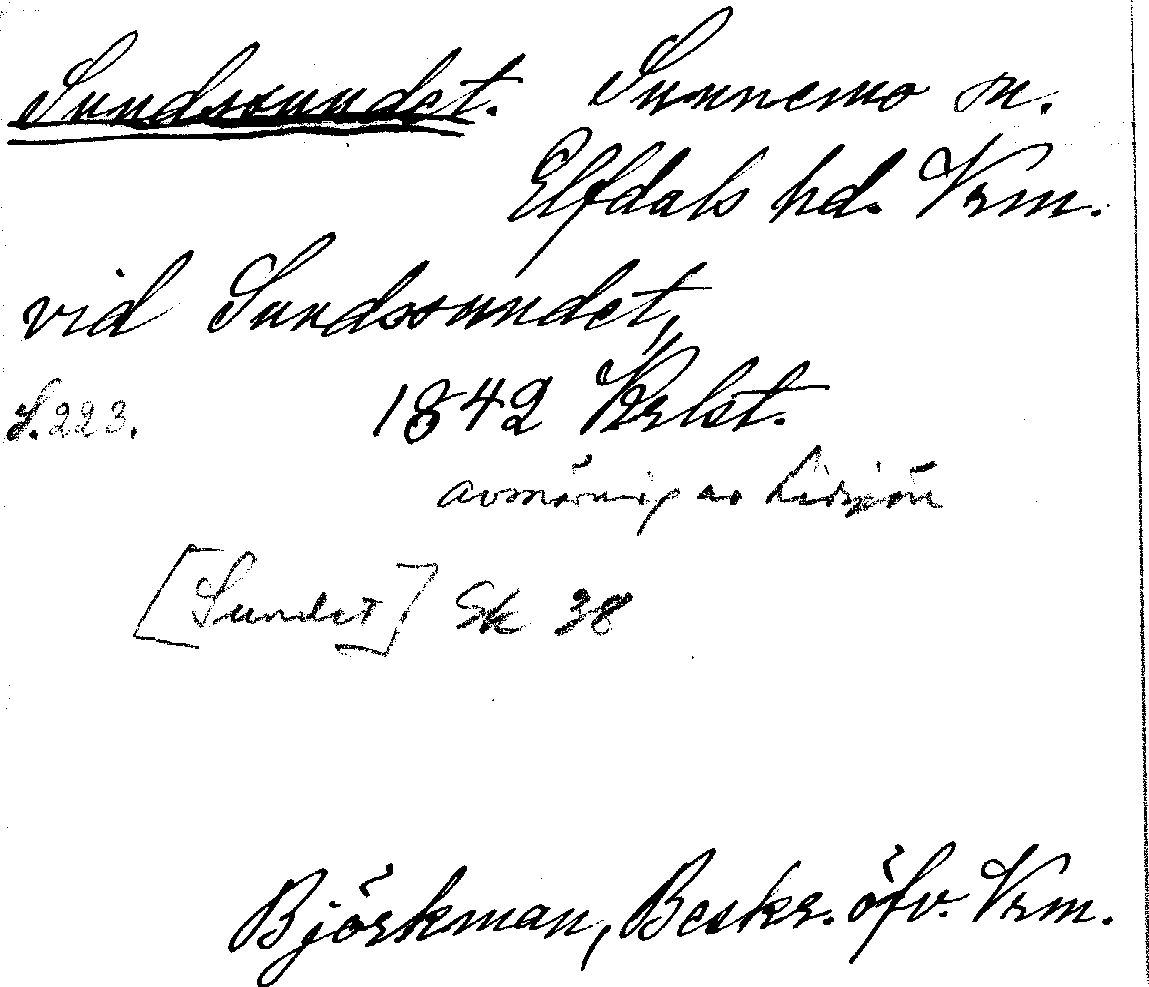 Sundssundet. Sunnemo sn.
Elfdals hd. Vrm.
vid Sundssundet,
S. 223. 1842 Krlst.
avsmalning av Lidsjön
[Sundet] Sk 38
Björkman, Beskr. öfv. Vrm.